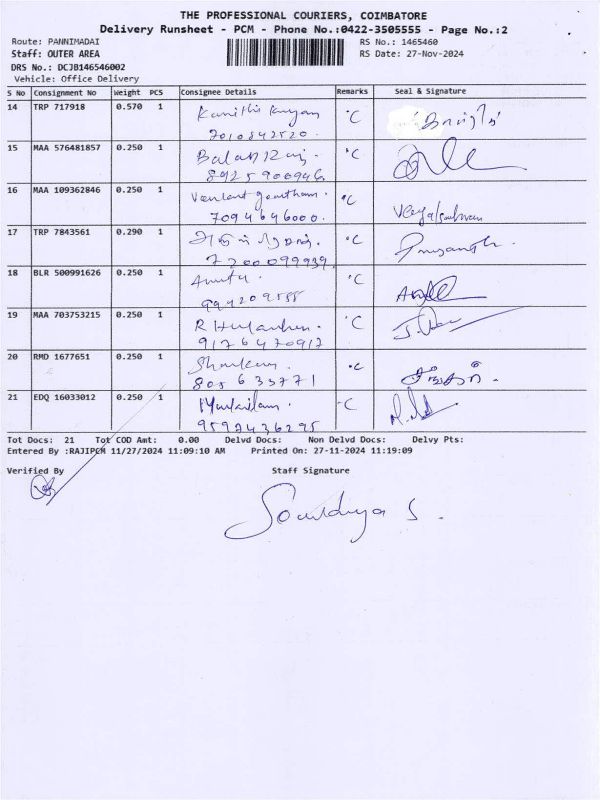 THE PROFESSIONAL COURIERS, COIMBATORE
Delivery Runsheet - PCM - Phone No.:0422-3505555 - Page No.:2
Route: PANNIMADAI RS No.: 1465460
Staff: OUTER AREA RS Date: 27-Nov-2024
DRS No.: DCJB146546002
Vehicle: Office Delivery
S No Consignment No Weight PCS Consignee Details Remarks Seal & Signature
14 TRP 717918 0.570 1 °C
7010842520.
15 MAA 576481857 0.250 1 Balaji Raj. °C
8925900946
16 MAA 109362846 0.250 1 Venkant goutham. °C
7094646000.
17 TRP 7843561 0.290 1 °C Prasanth.
7200099939
18 BLR 500991626 0.250 1 °C
994209555
19 MAA 703753215 0.250 1 °C
9176470917
20 RMD 1677651 0.250 1 °C
805633771
21 EDQ 16033012 0.250 1 °C
9597436295
Tot Docs: 21 Tot COD Amt: 0.00 Delvd Docs: Non Delvd Docs: Delvy Pts:
Entered By :RAJIPCM 11/27/2024 11:09:10 AM Printed On: 27-11-2024 11:19:09
Verified By Staff Signature